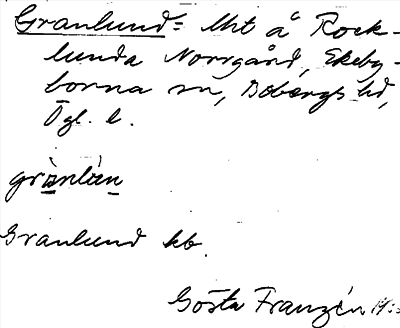 Granlund: Lht å Rock-
lunda Norrgård, Ekeby-
borna sn, Bobergs hd,
Ögl. l.
grànlún
Granlund kb.
Gösta Franzén